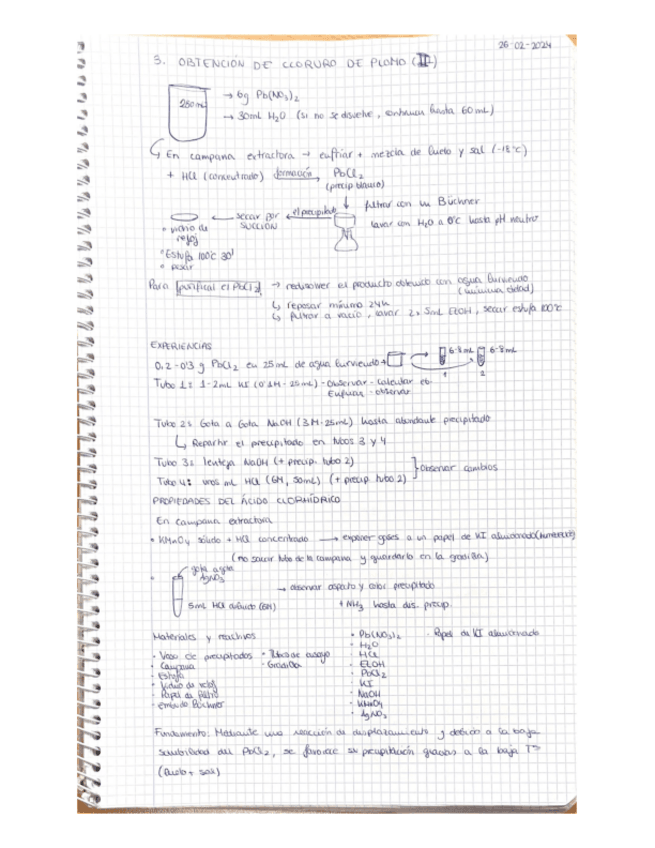 26-02-2024
3. OBTENCIÓN DE CLORURO DE PLOMO (II)
250mL
→ 6g Pb(NO3)2
→ 30mL H2O (si no se disuelve, continuar hasta 60mL)
En campana extractora → enfriar + mezcla de hielo y sal (-18ºC)
+ HCl (concentrado) formación → PbCl2
(precip blanco)
↓ filtrar con un Büchner
lavar con H2O a 0ºC hasta pH neutro
el precipitado
secar por
SUCCIÓN
• vidrio de
reloj
• Estufa 100ºC 30'
• pesar
Para purificar el PbCl2 → redisolver el producto obtenido con agua hirviendo
(mínima cantidad)
↳ reposar mínimo 24h
↳ filtrar a vacío, lavar 2x5mL EtOH, secar estufa 100ºC
EXPERIENCIAS
0,2-0'3 g PbCl2 en 25mL de agua hirviendo →
6-8mL 6-8mL
1 2
Tubo 1: 1-2mL KI (0'1M - 25mL) - Observar - calentar eb.
Enfriar - observar
Tubo 2: Gota a Gota NaOH (3M-25mL) hasta abundante precipitado
↳ Repartir el precipitado en tubos 3 y 4
Tubo 3: lenteja NaOH (+ precip. tubo 2)
Tubo 4: unos mL HCl (6M, 50mL) (+ precip tubo 2)
Observar cambios
PROPIEDADES DEL ÁCIDO CLORHÍDRICO
En campana extractora
• KMnO4 sólido + HCl concentrado → exponer gases a un papel de KI almidonado (humedecido)
(no sacar tubo de la campana y guardarlo en la gradilla)
gota a gota
AgNO3
→ observar aspecto y color precipitado
5mL HCl diluido (6M)
+ NH3 hasta dis. precip.
Materiales y reactivos
• Vaso de precipitados
• Campana
• Estufa
• Vidrio de reloj
• Papel de filtro
• embudo Büchner
• Tubos de ensayo
• Gradilla
• Pb(NO3)2
• H2O
• HCl
• EtOH
• PbCl2
• KI
• NaOH
• KMnO4
• AgNO3
· Papel de KI almidonado
Fundamento: Mediante una reacción de desplazamiento y debido a la baja
solubilidad del PbCl2, se favorece su precipitación gracias a la baja Tª
(hielo + sal)